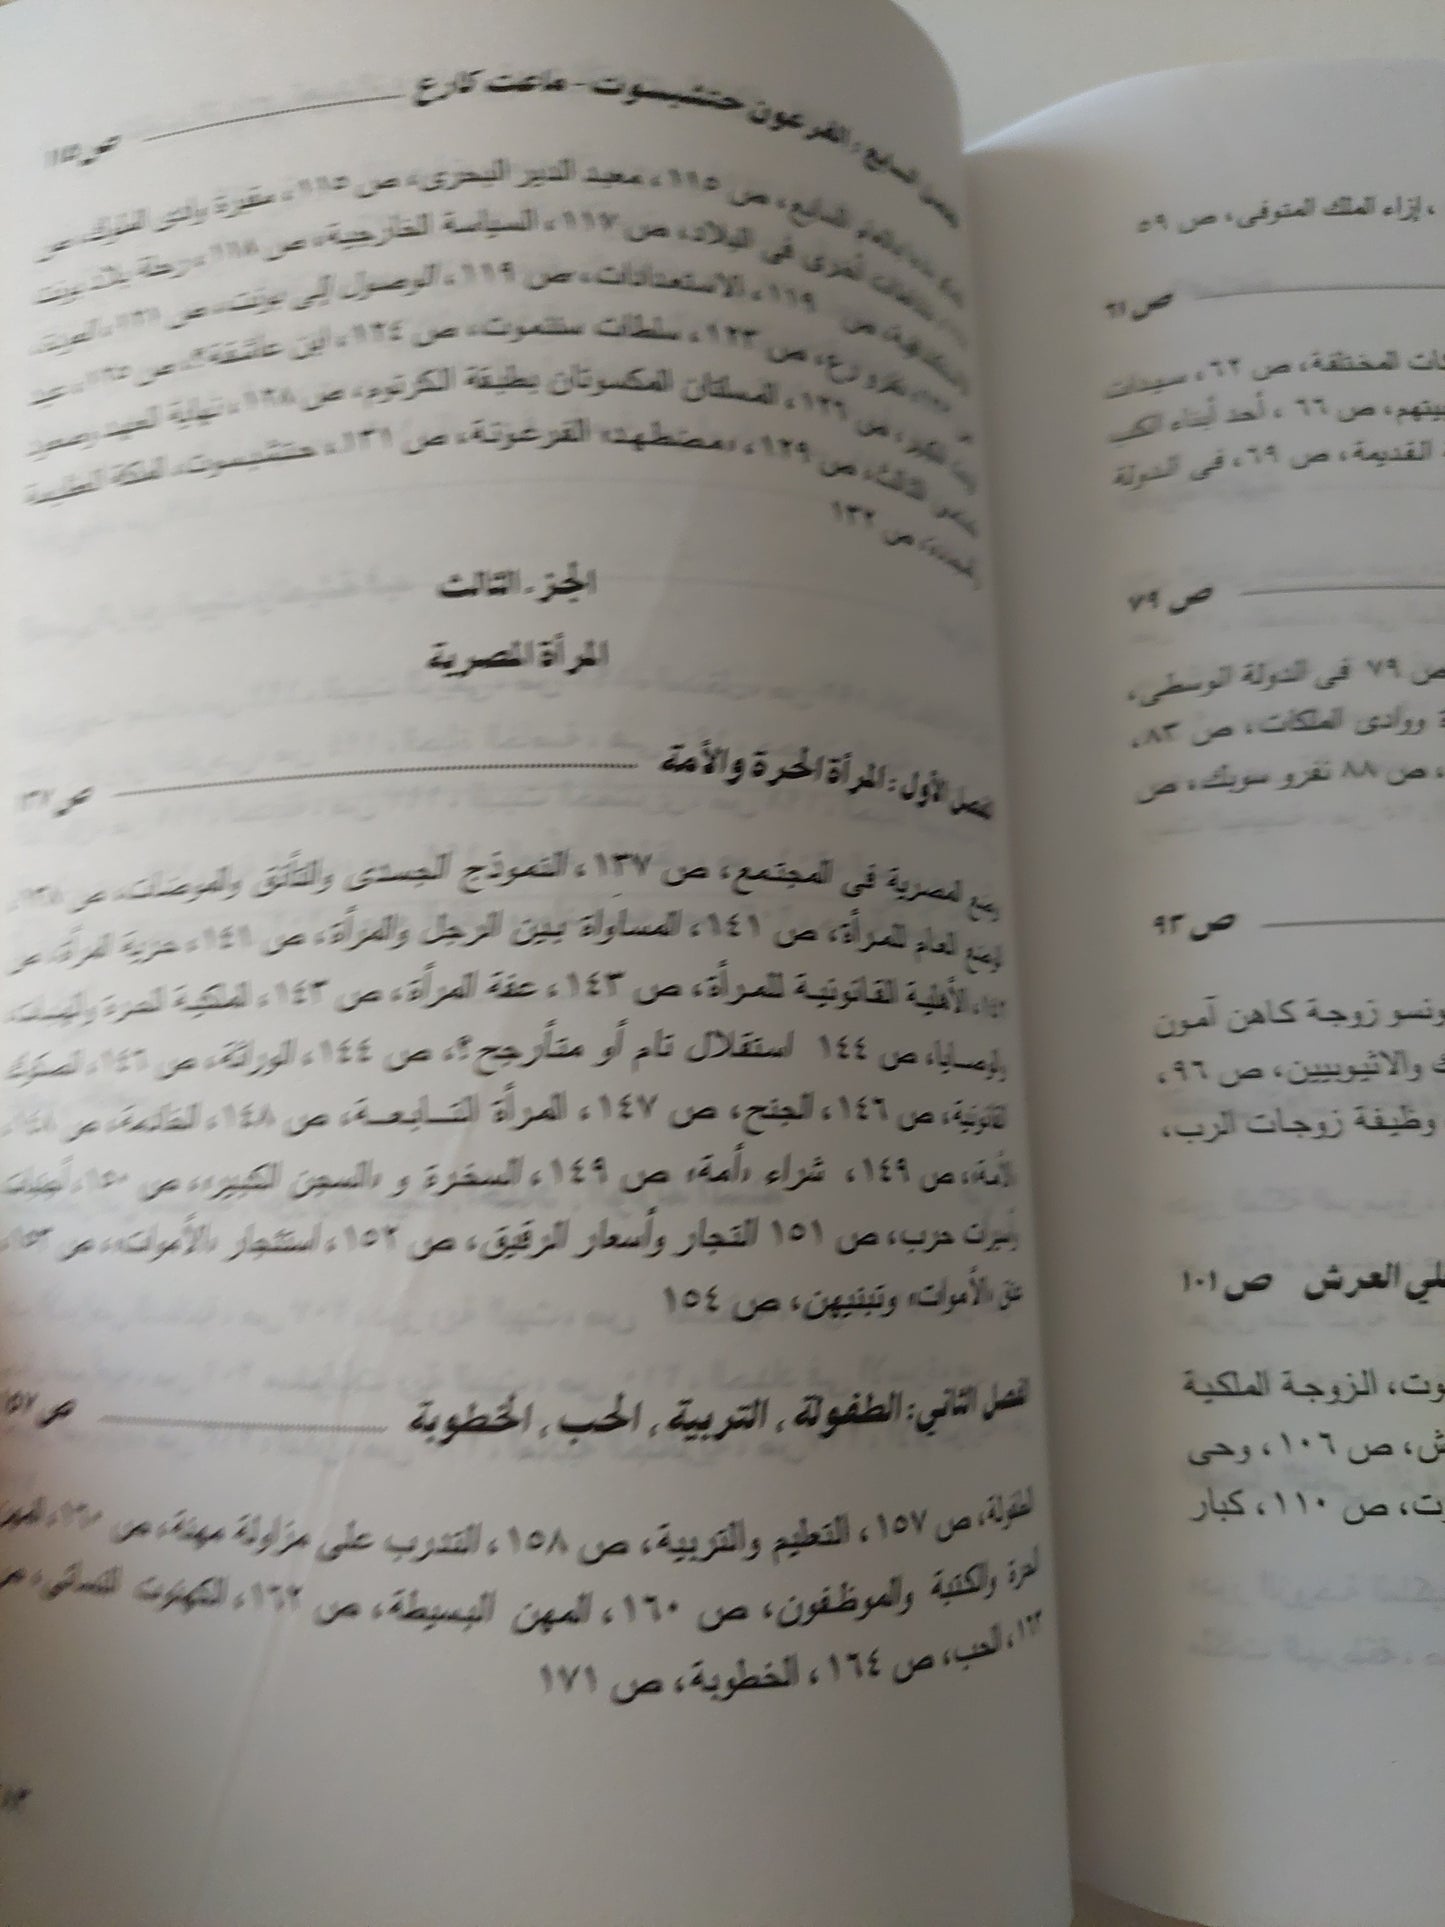 ، إزاء الملك المتوفى، ص ٥٩
ص ٦١
المختلفة، ص ٦٢، سيدات
بيتهم، ص ٦٦، أحد أبناء الكب
القديمة، ص ٦٩، فى الدولة
ص ٧٩
ص ٧٩ فى الدولة الوسطى،
ووادى الملكات، ص ٨٣،
، ص ٨٨ نفرو سوبك، ص
ص ٩٣
ونسو زوجة كاهن آمون
والاثيوبيين، ص ٩٦،
وظيفة زوجات الرب،
لي العرش ص ١٠١
وت، الزوجة الملكية
ش، ص ١٠٦، وحى
ت، ص ١١٠، كبار
الفصل السابع: الفرعون حتشبسوت - ماعت كارع ص ١١٥
السابع، ص ١١٥، معبد الدير البحرى، ص ١١٥، مقبرة وادى الملوك، ص
أخرى فى البلاد، ص ١١٧، السياسة الخارجية، ص ١١٨، رحلة بلاد بونت
ص ١١٩، الاستعدادات، ص ١١٩، الوصول إلى بونت، ص ١٢١، العودة،
نفرو رع، ص ١٢٣، سلطات سننموت، ص ١٢٤، ابن عاشقة؟، ص ١٢٥، عيد
ص ١٢٦، المسلتان المكسوتان بطبقة الكرتوم، ص ١٢٨، نهاية العهد وصعود
الثالث، ص ١٢٩، «مضطهد» الفرعونة، ص ١٣١، حتشبسوت، الملكة العظيمة
ص ١٣٢
الجزء الثالث
المرأة المصرية
الفصل الأول: المرأة الحرة والأمة ص ١٣٧
وضع المصرية فى المجتمع، ص ١٣٧، النموذج الجسدى والتأنق والموضات، ص ١٣٨،
الوضع العام للمرأة، ص ١٤١، المساواة بين الرجل والمرأة، ص ١٤١، حرية المرأة، ص
١٤٢، الأهلية القانونية للمرأة، ص ١٤٣، عفة المرأة، ص ١٤٣، الملكية الحرة والهبات،
والوصايا، ص ١٤٤ استقلال تام أو متأرجح؟، ص ١٤٤، الوراثة، ص ١٤٦، الصكوك
القانونية، ص ١٤٦، الجنح، ص ١٤٧، المرأة التابعة، ص ١٤٨، الخادمة، ص ١٤٨،
الأمة، ص ١٤٩، شراء «أمة» ص ١٤٩، السخرة و «السجن الكبير»، ص ١٥٠، أجنبيات
وأسيرات حرب، ص ١٥١ التجار وأسعار الرقيق، ص ١٥٢، استئجار «الأموات»، ص ١٥٣،
عتق «الأموات» وتبنيهن، ص ١٥٤
الفصل الثاني: الطفولة، التربية، الحب، الخطوبة ص ١٥٧
الطفولة، ص ١٥٧، التعليم والتربية، ص ١٥٨، التدرب على مزاولة مهنة، ص ١٦٠، المهن
الحرة والكتبة والموظفون، ص ١٦٠، المهن البسيطة، ص ١٦٢، الكهنوت النسائى، ص
١٦٣، الحب، ص ١٦٤، الخطوبة، ص ١٧١